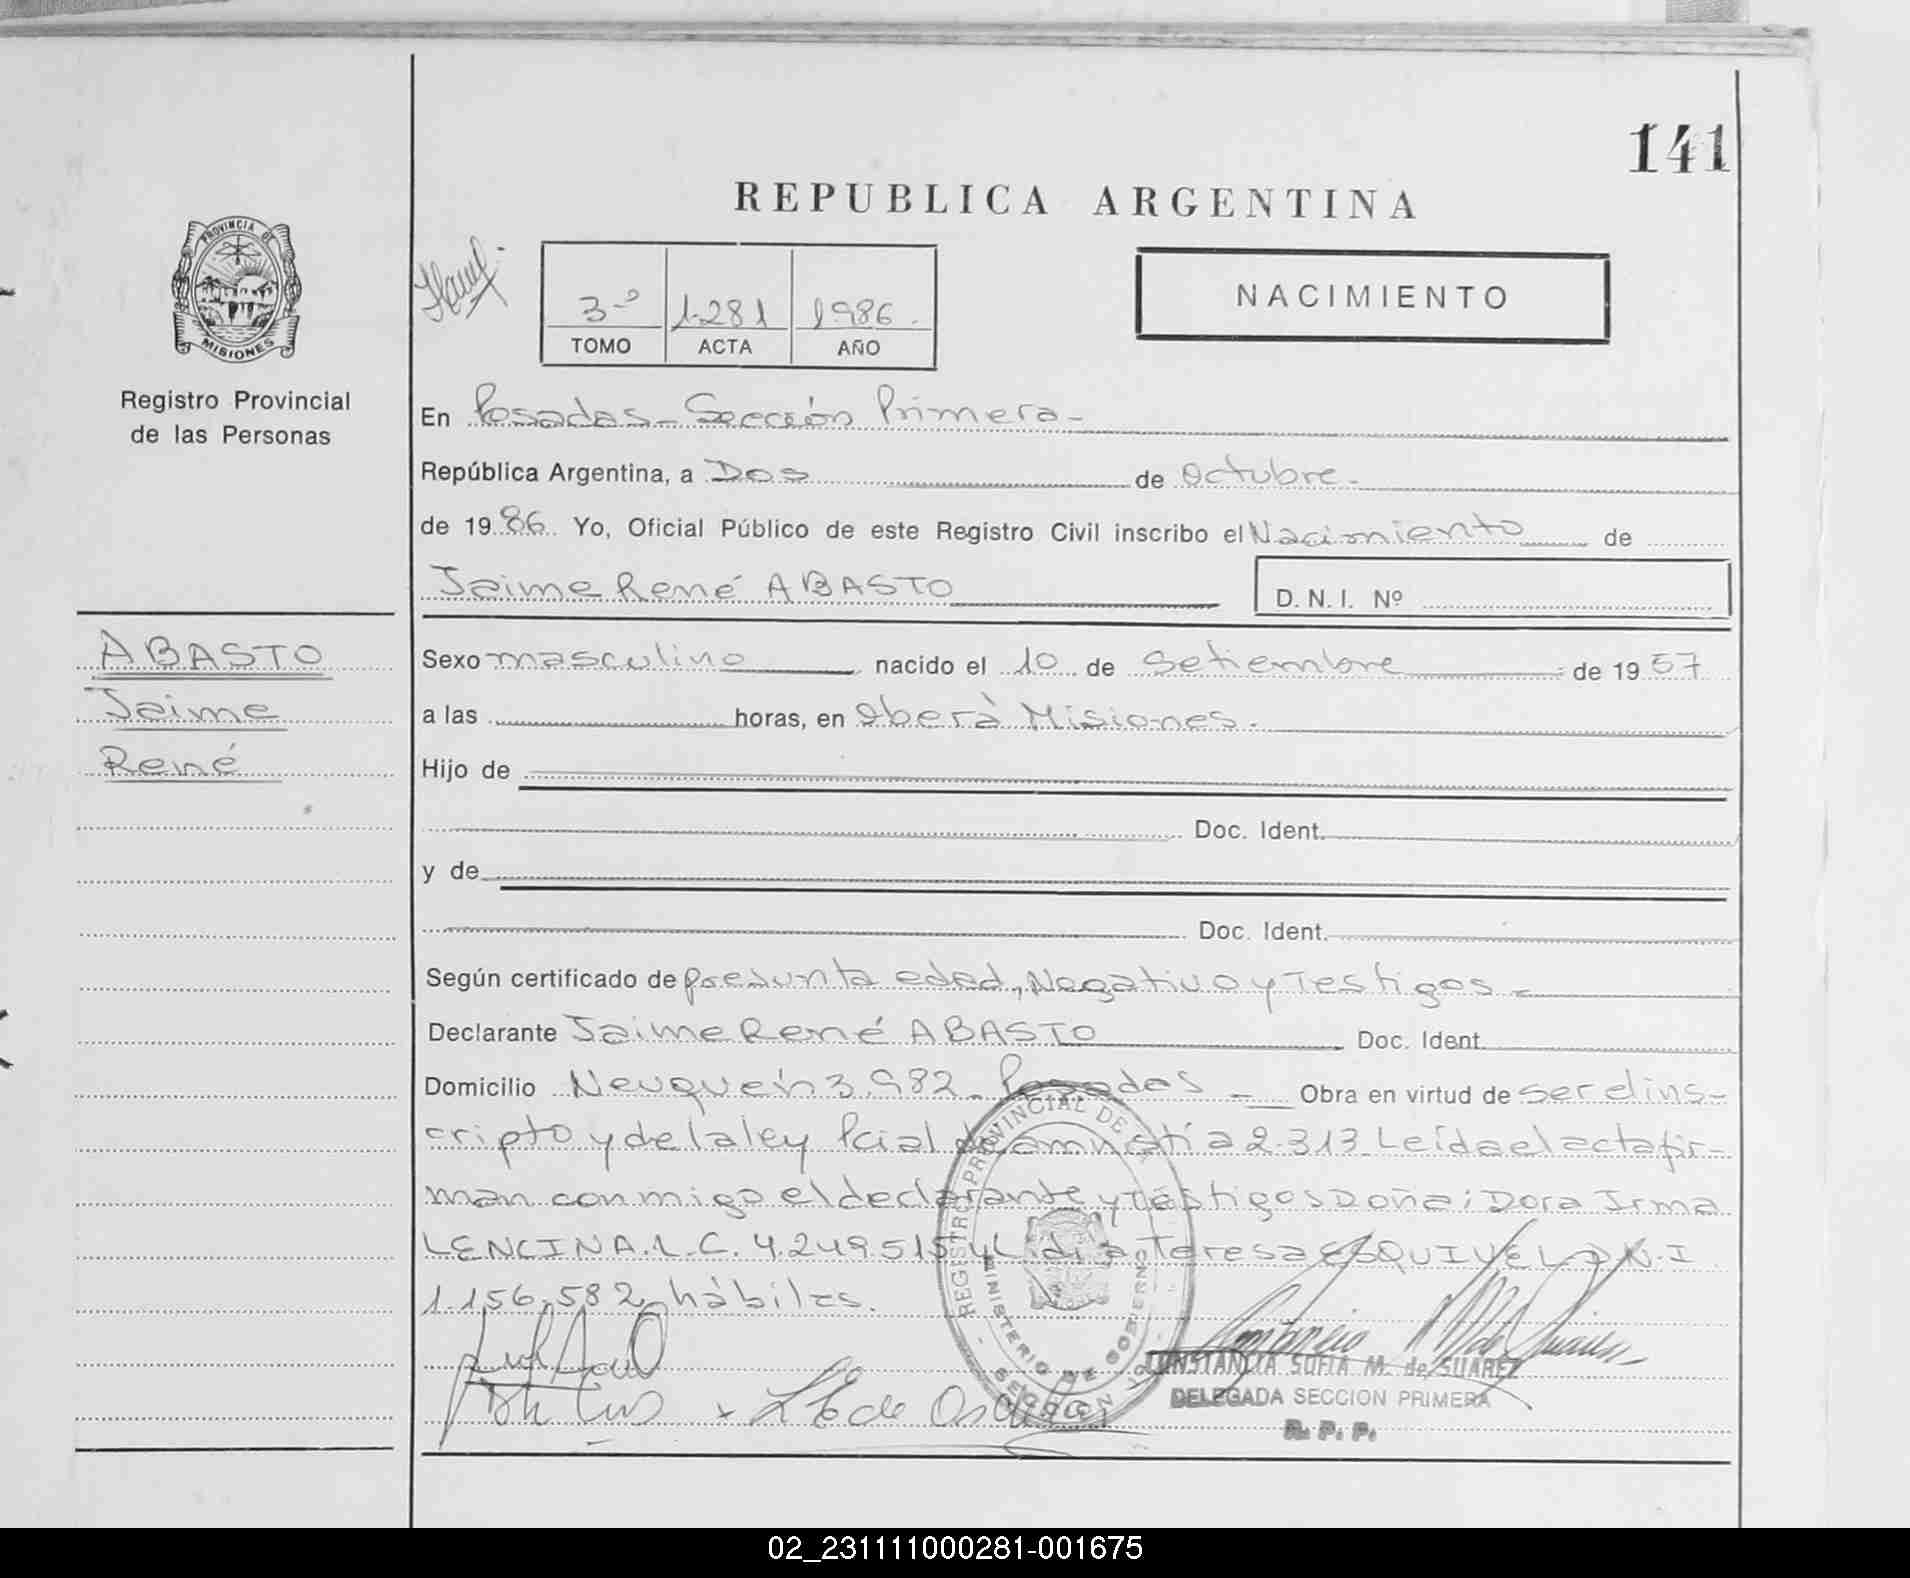 141
REPUBLICA ARGENTINA
PROVINCIA DE
MISIONES
Registro Provincial
de las Personas
3º 1.281 1986.
TOMO ACTA AÑO
NACIMIENTO
En Posadas - Sección Primera -
República Argentina, a Dos de octubre.
de 1986. Yo, Oficial Público de este Registro Civil inscribo el Nacimiento de
Jaime René ABASTO D.N.I. Nº
ABASTO
Jaime
René
Sexo masculino nacido el 10 de Setiembre de 1967
a las horas, en Oberá Misiones.
Hijo de
Doc. Ident.
y de
Doc. Ident.
Según certificado de presunta edad, Negativo y Testigos -
Declarante Jaime René ABASTO Doc. Ident.
Domicilio Neuquén 3.982 - Posadas - Obra en virtud de ser el ins-
cripto y de la ley Pcial de amnistía 2.313 Leída el acta fir-
man conmigo el declarante y Testigos Doña: Dora Irma
LENCINA. L.C. 4.249.515 y Teresa ESQUIVEL D.N.I
1.156.582 hábiles.
REGISTRO PROVINCIAL DE
MINISTERIO DE GOBIERNO
SECCION
CONSTANCIA SOFIA M. de SUAREZ
DELEGADA SECCION PRIMERA
R. P. P.
02_231111000281-001675